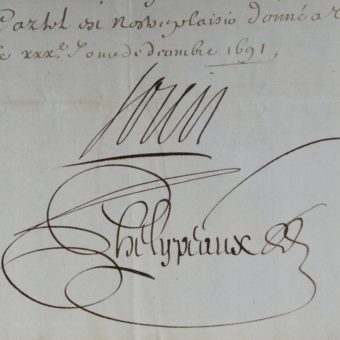 Car tel est nostre plaisir donné a
le xxx.e Jour de decembre 1691.
Louis
Phelypeaux